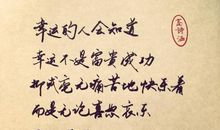 幸运的人会知道
幸运不是富贵成功
抑或毫无痛苦地快乐着
而是无论喜乐哀乐